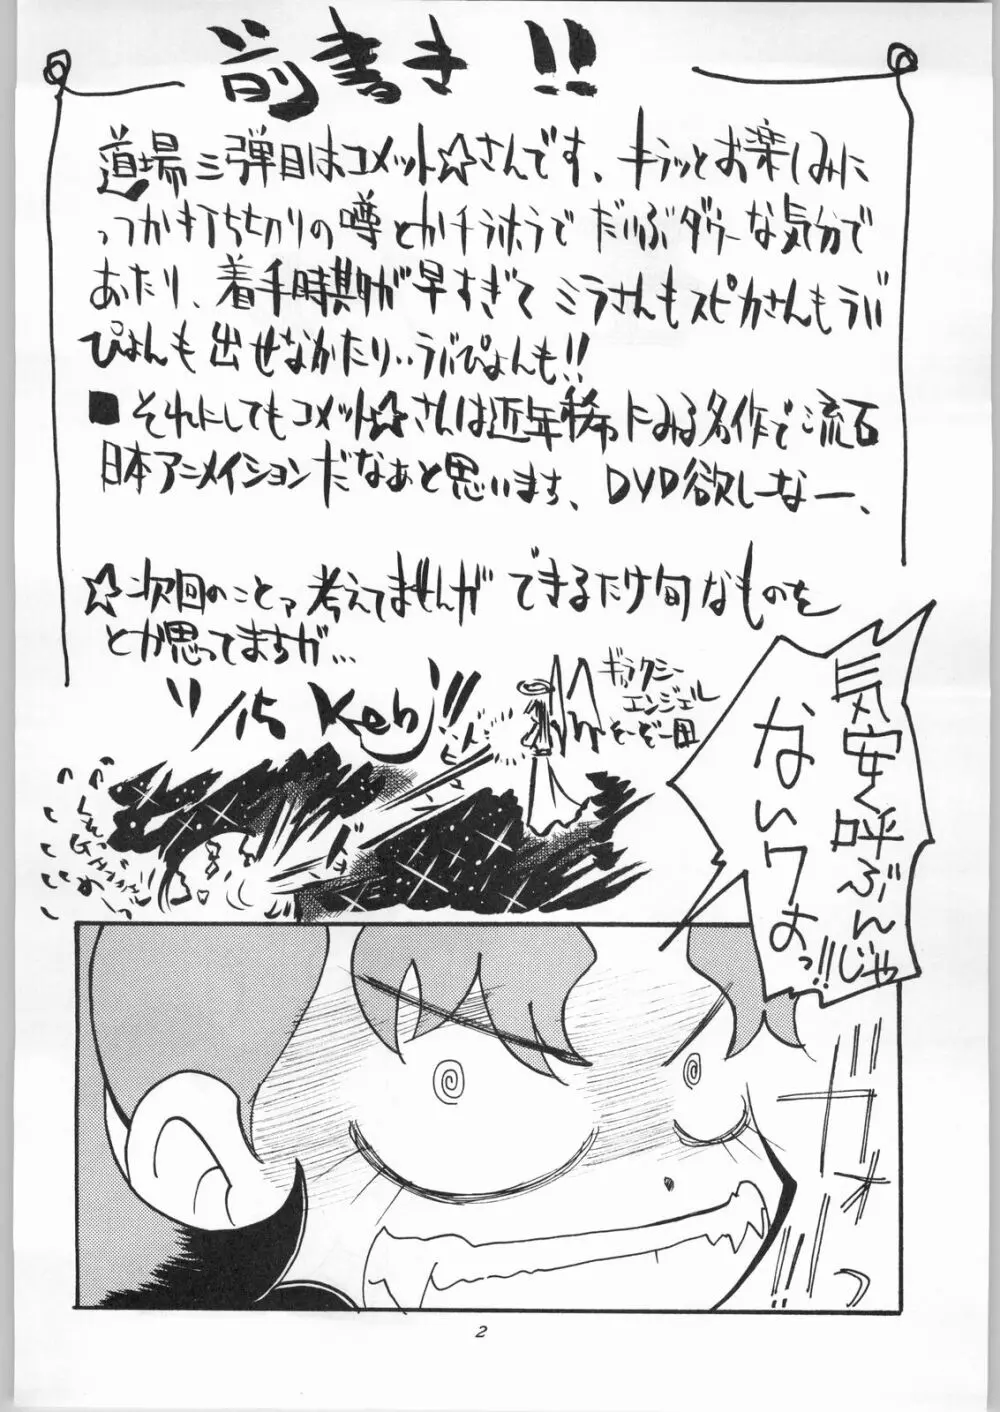 前書き!!
道場三弾目はコメット☆さんです、キラッとお楽しみに
っつか打ち切りの噂とかチラホラでだいぶダウーな気分で
あたり、着手時期が早すぎてミラさんもスピカさんもラバ
ぴょんも出せなかたり‥ラバぴょんも!!
■それにしてもコメット☆さんは近年稀にみる名作で流石
日本アニメイションだなぁと思います、DVD欲しーなー、
☆次回のことァ考えてませんができるだけ旬なものを
とか思ってますが…
11/15 Keb!!
ギャラクシー
エンジェル
そーぞー図
気安く呼ぶんじゃ
ないワよっ!!
ガォっ
2